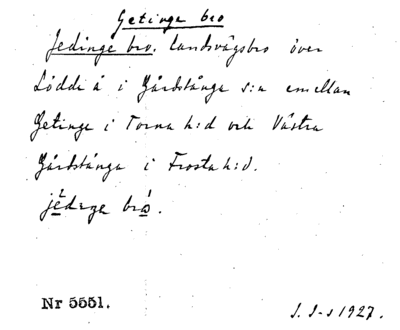 Getinge bro
Jedinge bro. Landsvägsbro över
Lödde å i Gårdstånga s:n emellan
Getinge i Torna h:d och Västra
Gårdstånga i Frosta h:d.
bro.
Nr 5551.
1927.